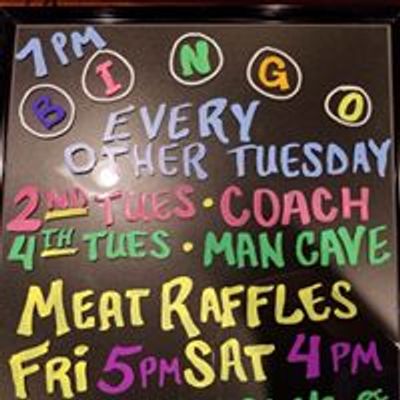 7 PM
BINGO
EVERY
OTHER TUESDAY
2ND TUES • COACH
4TH TUES • MAN CAVE
MEAT RAFFLES
FRI 5PM SAT 4PM